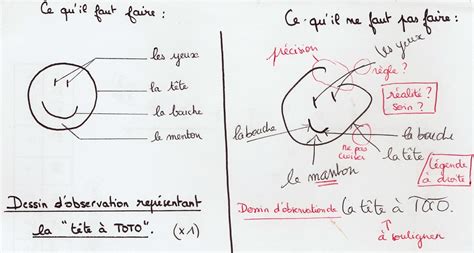 Ce qu'il faut faire :
les yeux
la tête
la bouche
le menton
Dessin d'observation représentant
la "tête à TOTO". (x1)
Ce qu'il ne faut pas faire :
précision
les yeux
règle ?
réalité ?
soin ?
la bouche
la bouche
ne pas
croiser
la tête
le manton
légende
à droite
Dessin d'observation de la tête à TOTO.
à souligner